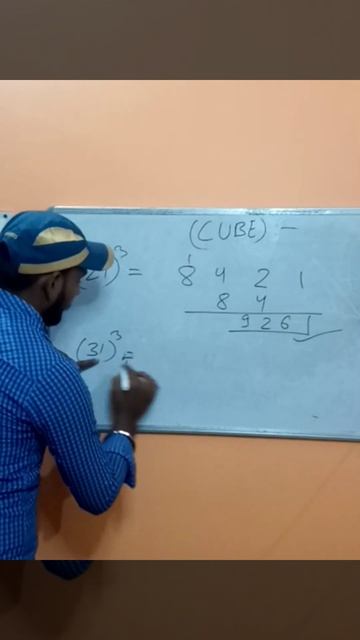 (CUBE) -
(21)³ = 8 4 2 1
1
8 4
9 2 6 1
(31)³ =